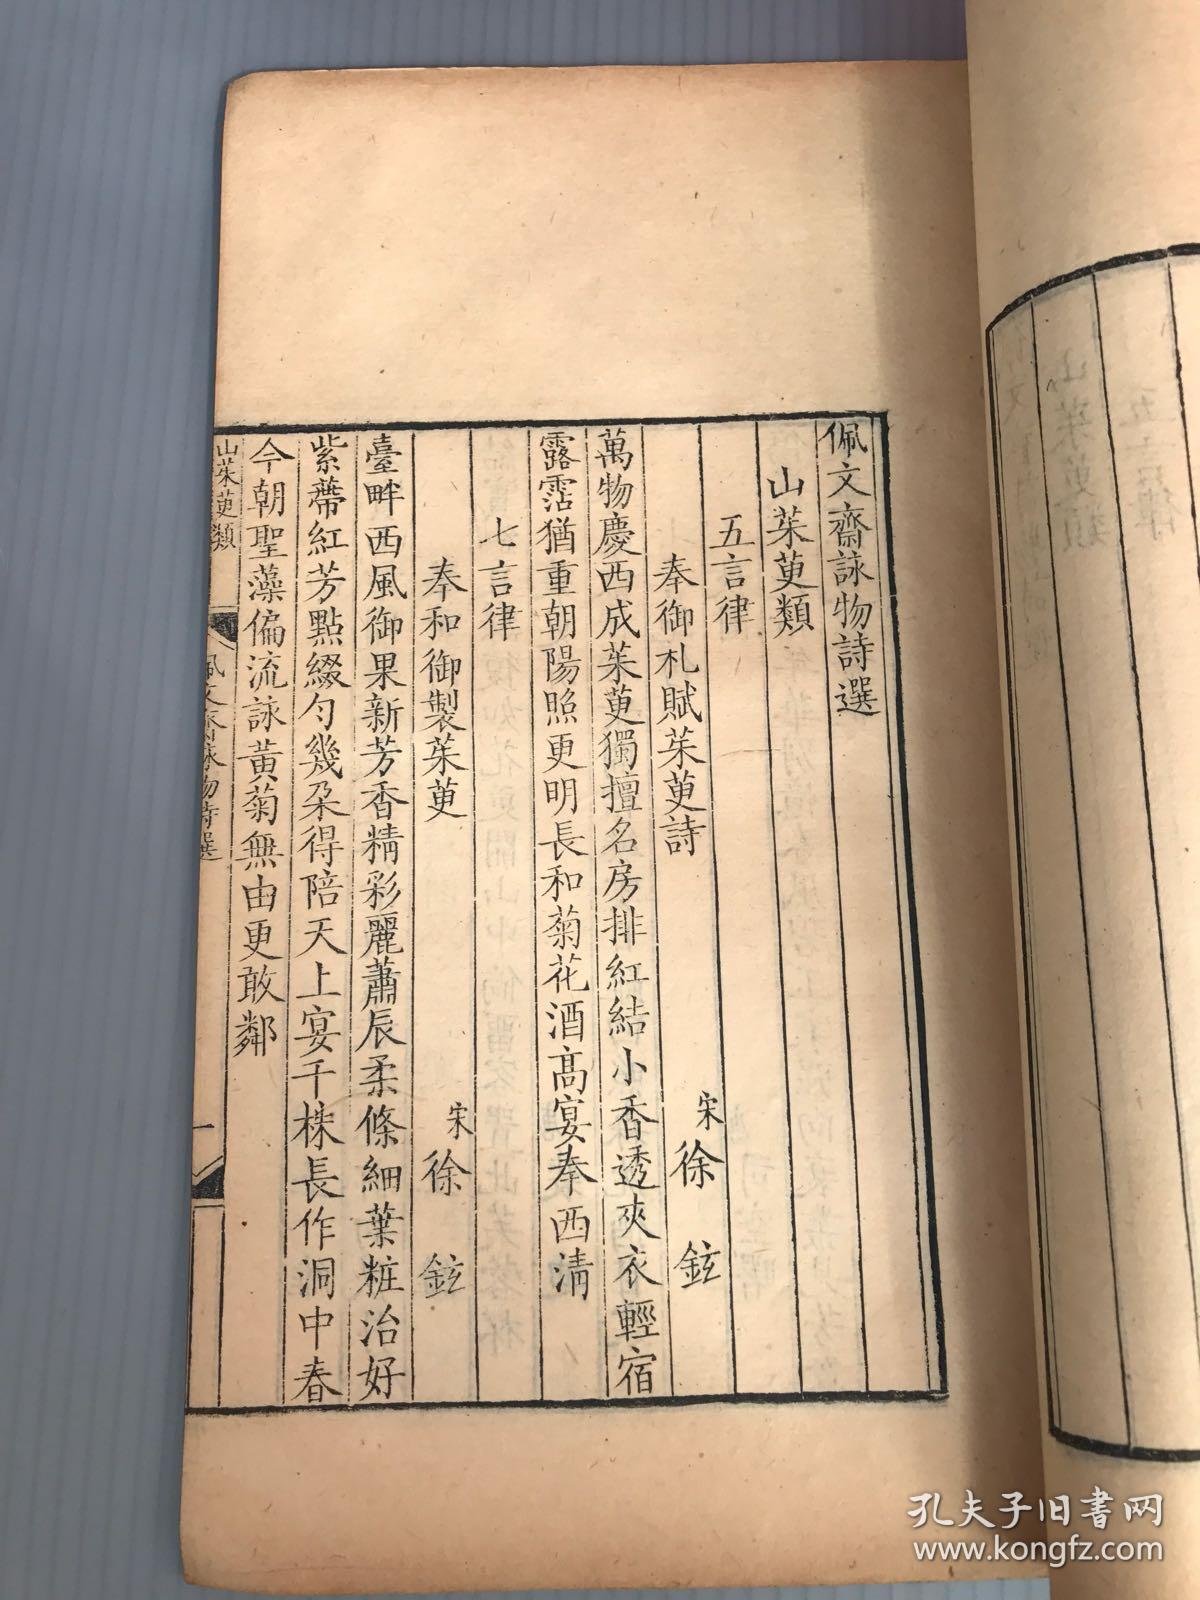 佩文齋詠物詩選
山茱萸類
五言律
奉御札賦茱萸詩 宋徐鉉
萬物慶西成茱萸獨擅名房排紅結小香透夾衣輕宿
露霑猶重朝陽照更明長和菊花酒高宴奉西清
七言律
奉和御製茱萸 宋徐鉉
臺畔西風御果新芳香精彩麗蕭辰柔條細葉粧治好
紫蔕紅芳點綴勻幾朶得陪天上宴千株長作洞中春
今朝聖藻偏流詠黃菊無由更敢鄰
山茱萸類 佩文齋詠物詩選 一
孔夫子旧书网
www.kongfz.com